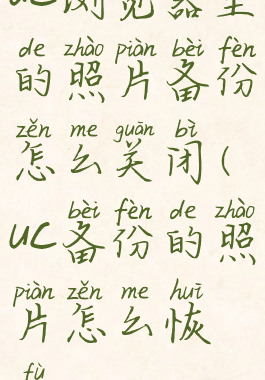 uc浏览器里
de zhào piàn bèi fèn
的照片备份
zěn me guān bì
怎么关闭(
bèi fèn de zhào
uc备份的照
piàn zěn me huī
片怎么恢
fù